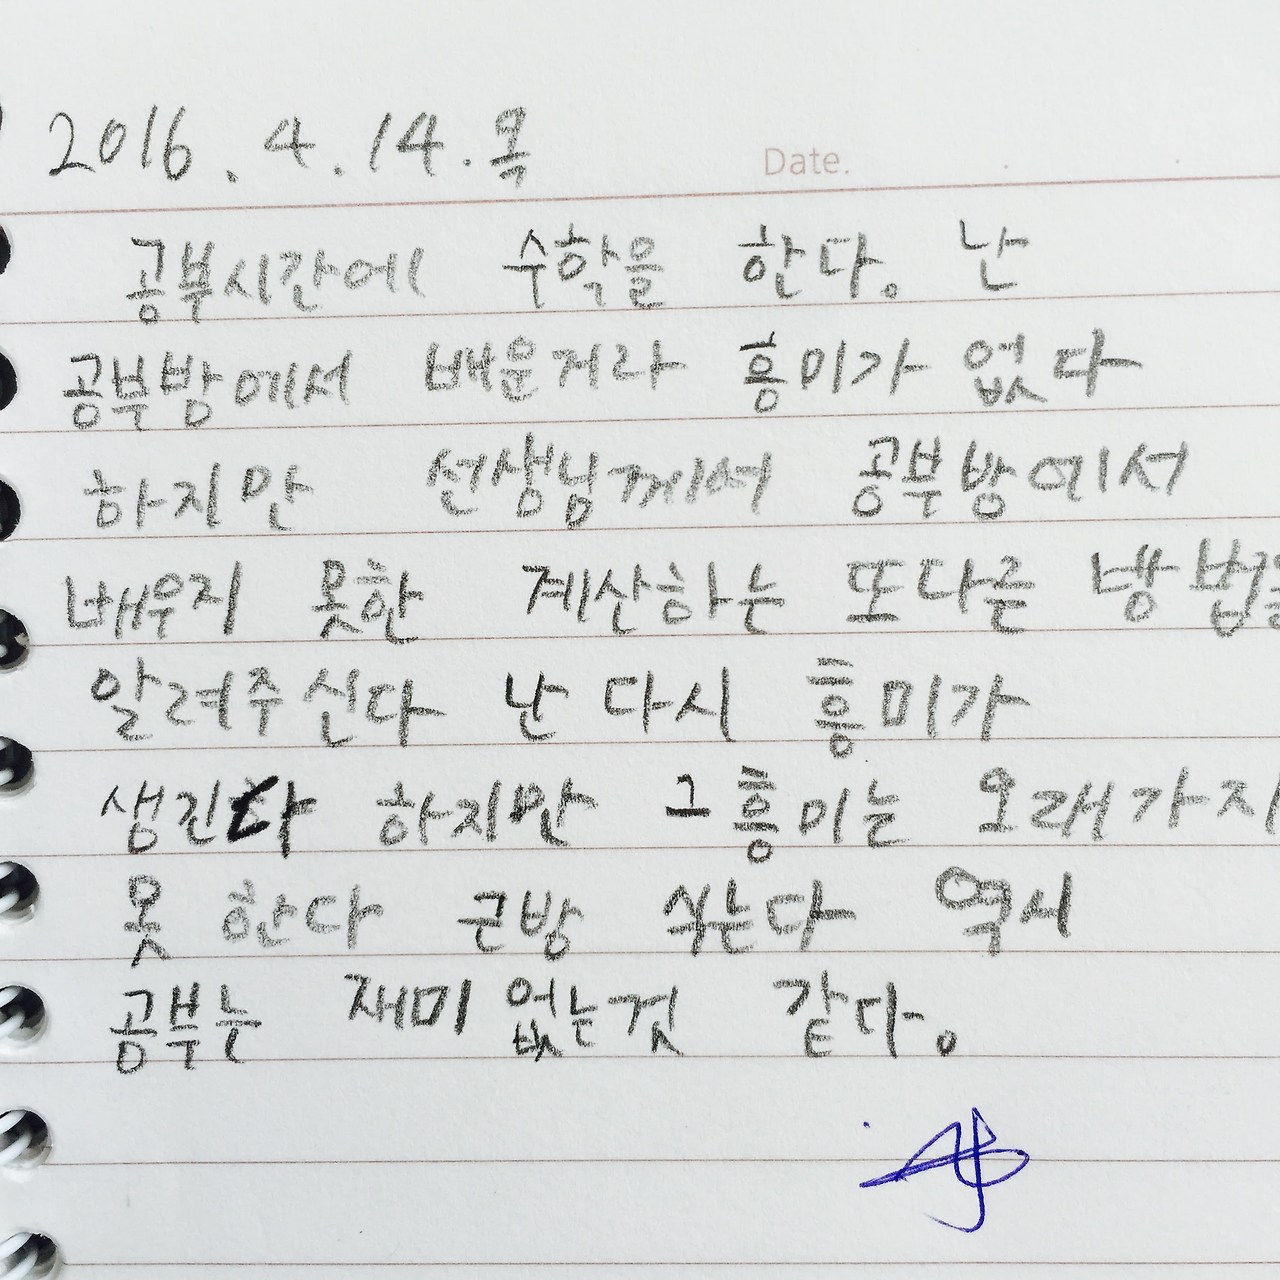 2016.4.14.목
Date.
공부시간에 수학을 한다. 난
공부방에서 배운거라 흥미가 없다
하지만 선생님께서 공부방에서
배우지 못한 계산하는 또다른 방법을
알려주신다 난 다시 흥미가
생긴다 하지만 그 흥미는 오래가지
못 한다 금방 식는다 역시
공부는 재미 없는것 같다.